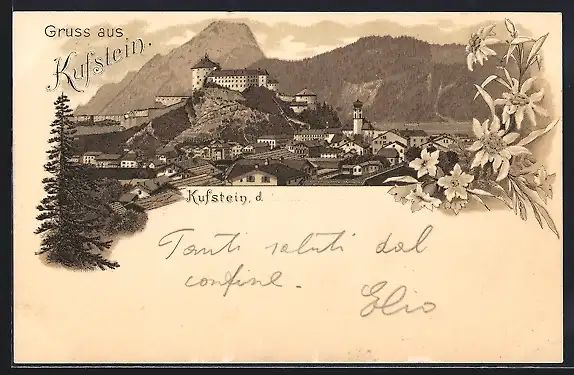 Gruss aus
Kufstein.
Kufstein, d.
Tanti saluti dal
confine.
Elio